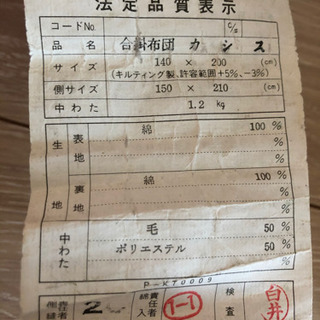 法定品質表示
コードNo. C/S
品名 合掛布団 カシス
サイズ 140 × 200 (cm)
(キルティング製、許容範囲+5%、-3%)
側サイズ 150 × 210 (cm)
中わた 1.2 kg
生地 表地 綿 100 %
%
%
裏地 綿 100 %
%
%
中わた 毛 50 %
ポリエステル 50 %
%
P-KT0009
責任者 2 綿入 責任者 1-1 検査 白井